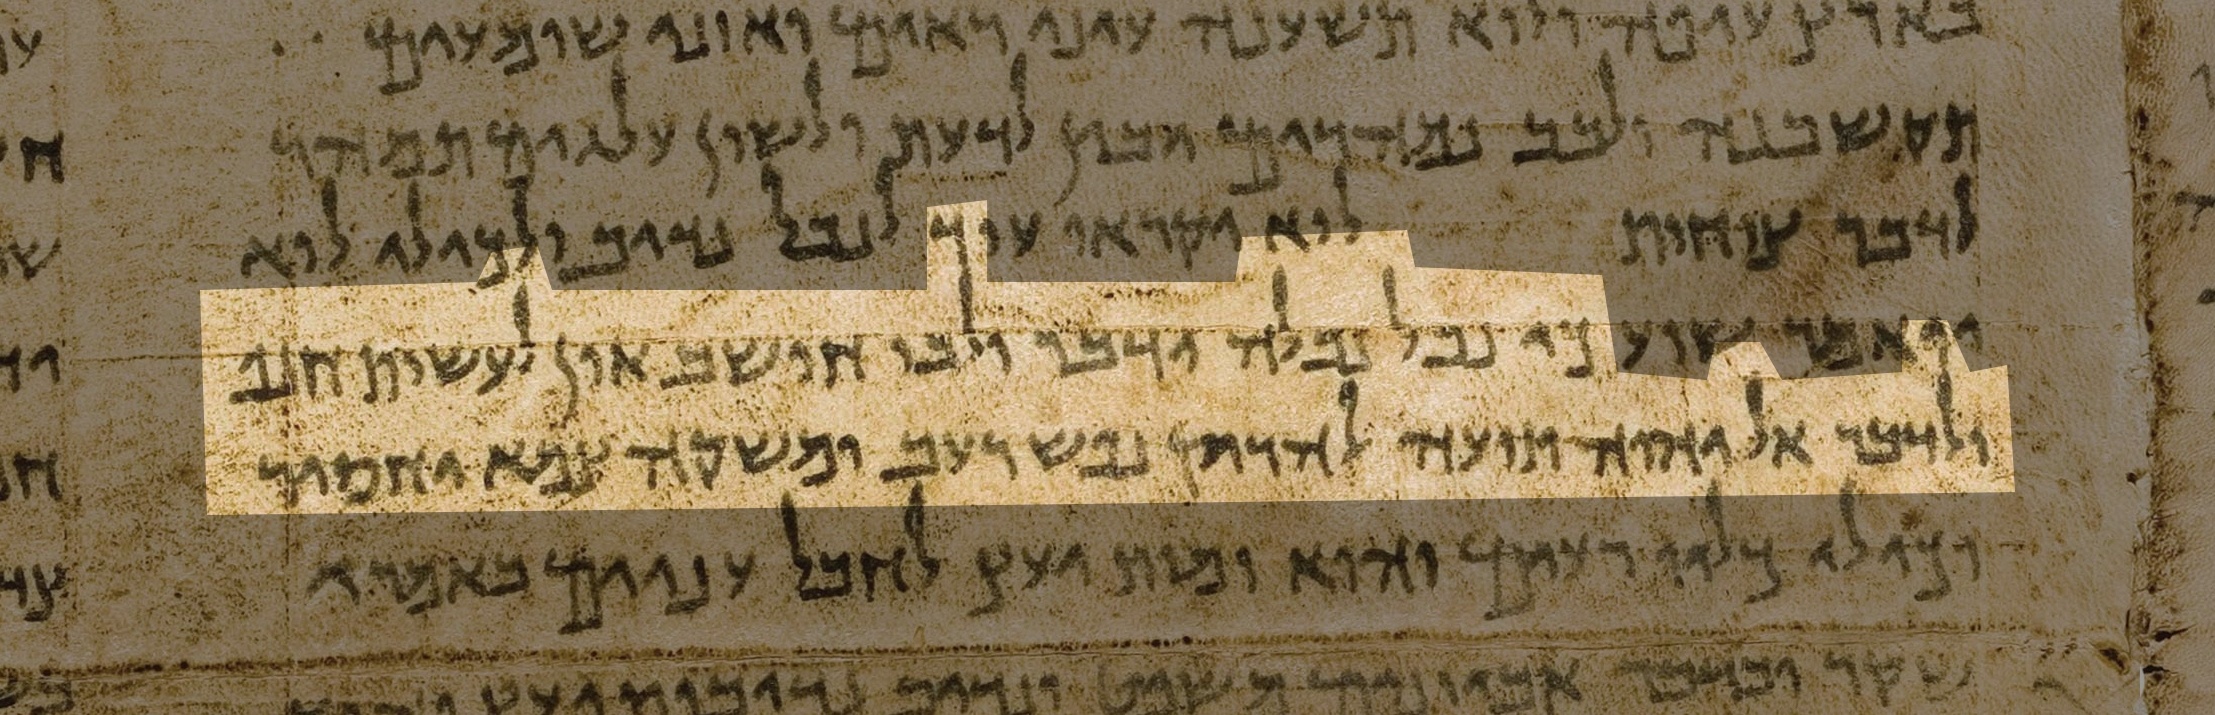 בארץ עיפה ולוא תשענה עיני ראים ואוזני שומעים
תקשבנה ולבב נמהרים יבין לדעת ולשון עלגים תמהר
לדבר צחות לוא יקראו עוד לנבל נדיב ולכילי לוא
יאמר שוע כי נבל נבלה ידבר ולבו חושב און לעשות חנף
ולדבר אל יהוה תועה להריק נפש רעב ומשקה צמא יחסיר
וכילי כליו רעים והוא זמות יעץ לחבל עניים באמרי
שקר ובדבר אביונים משפט ונדיב נדיבות יעץ